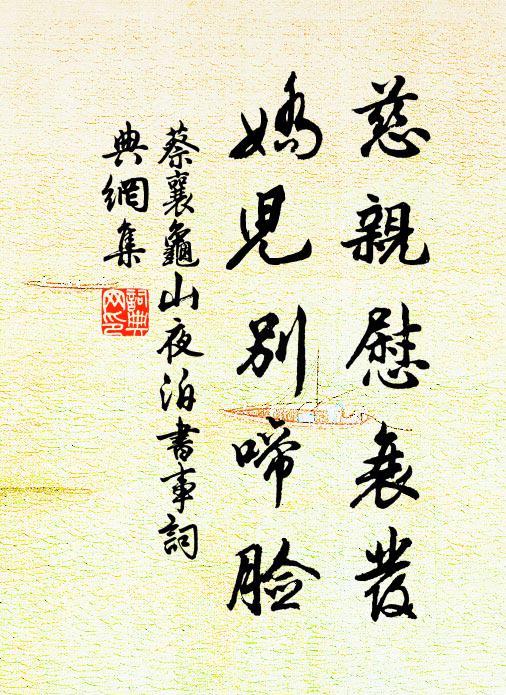 慈親慰衰發
嬌児別啼臉
蔡襄龜山夜泊書事詞
典網集
詞典網印